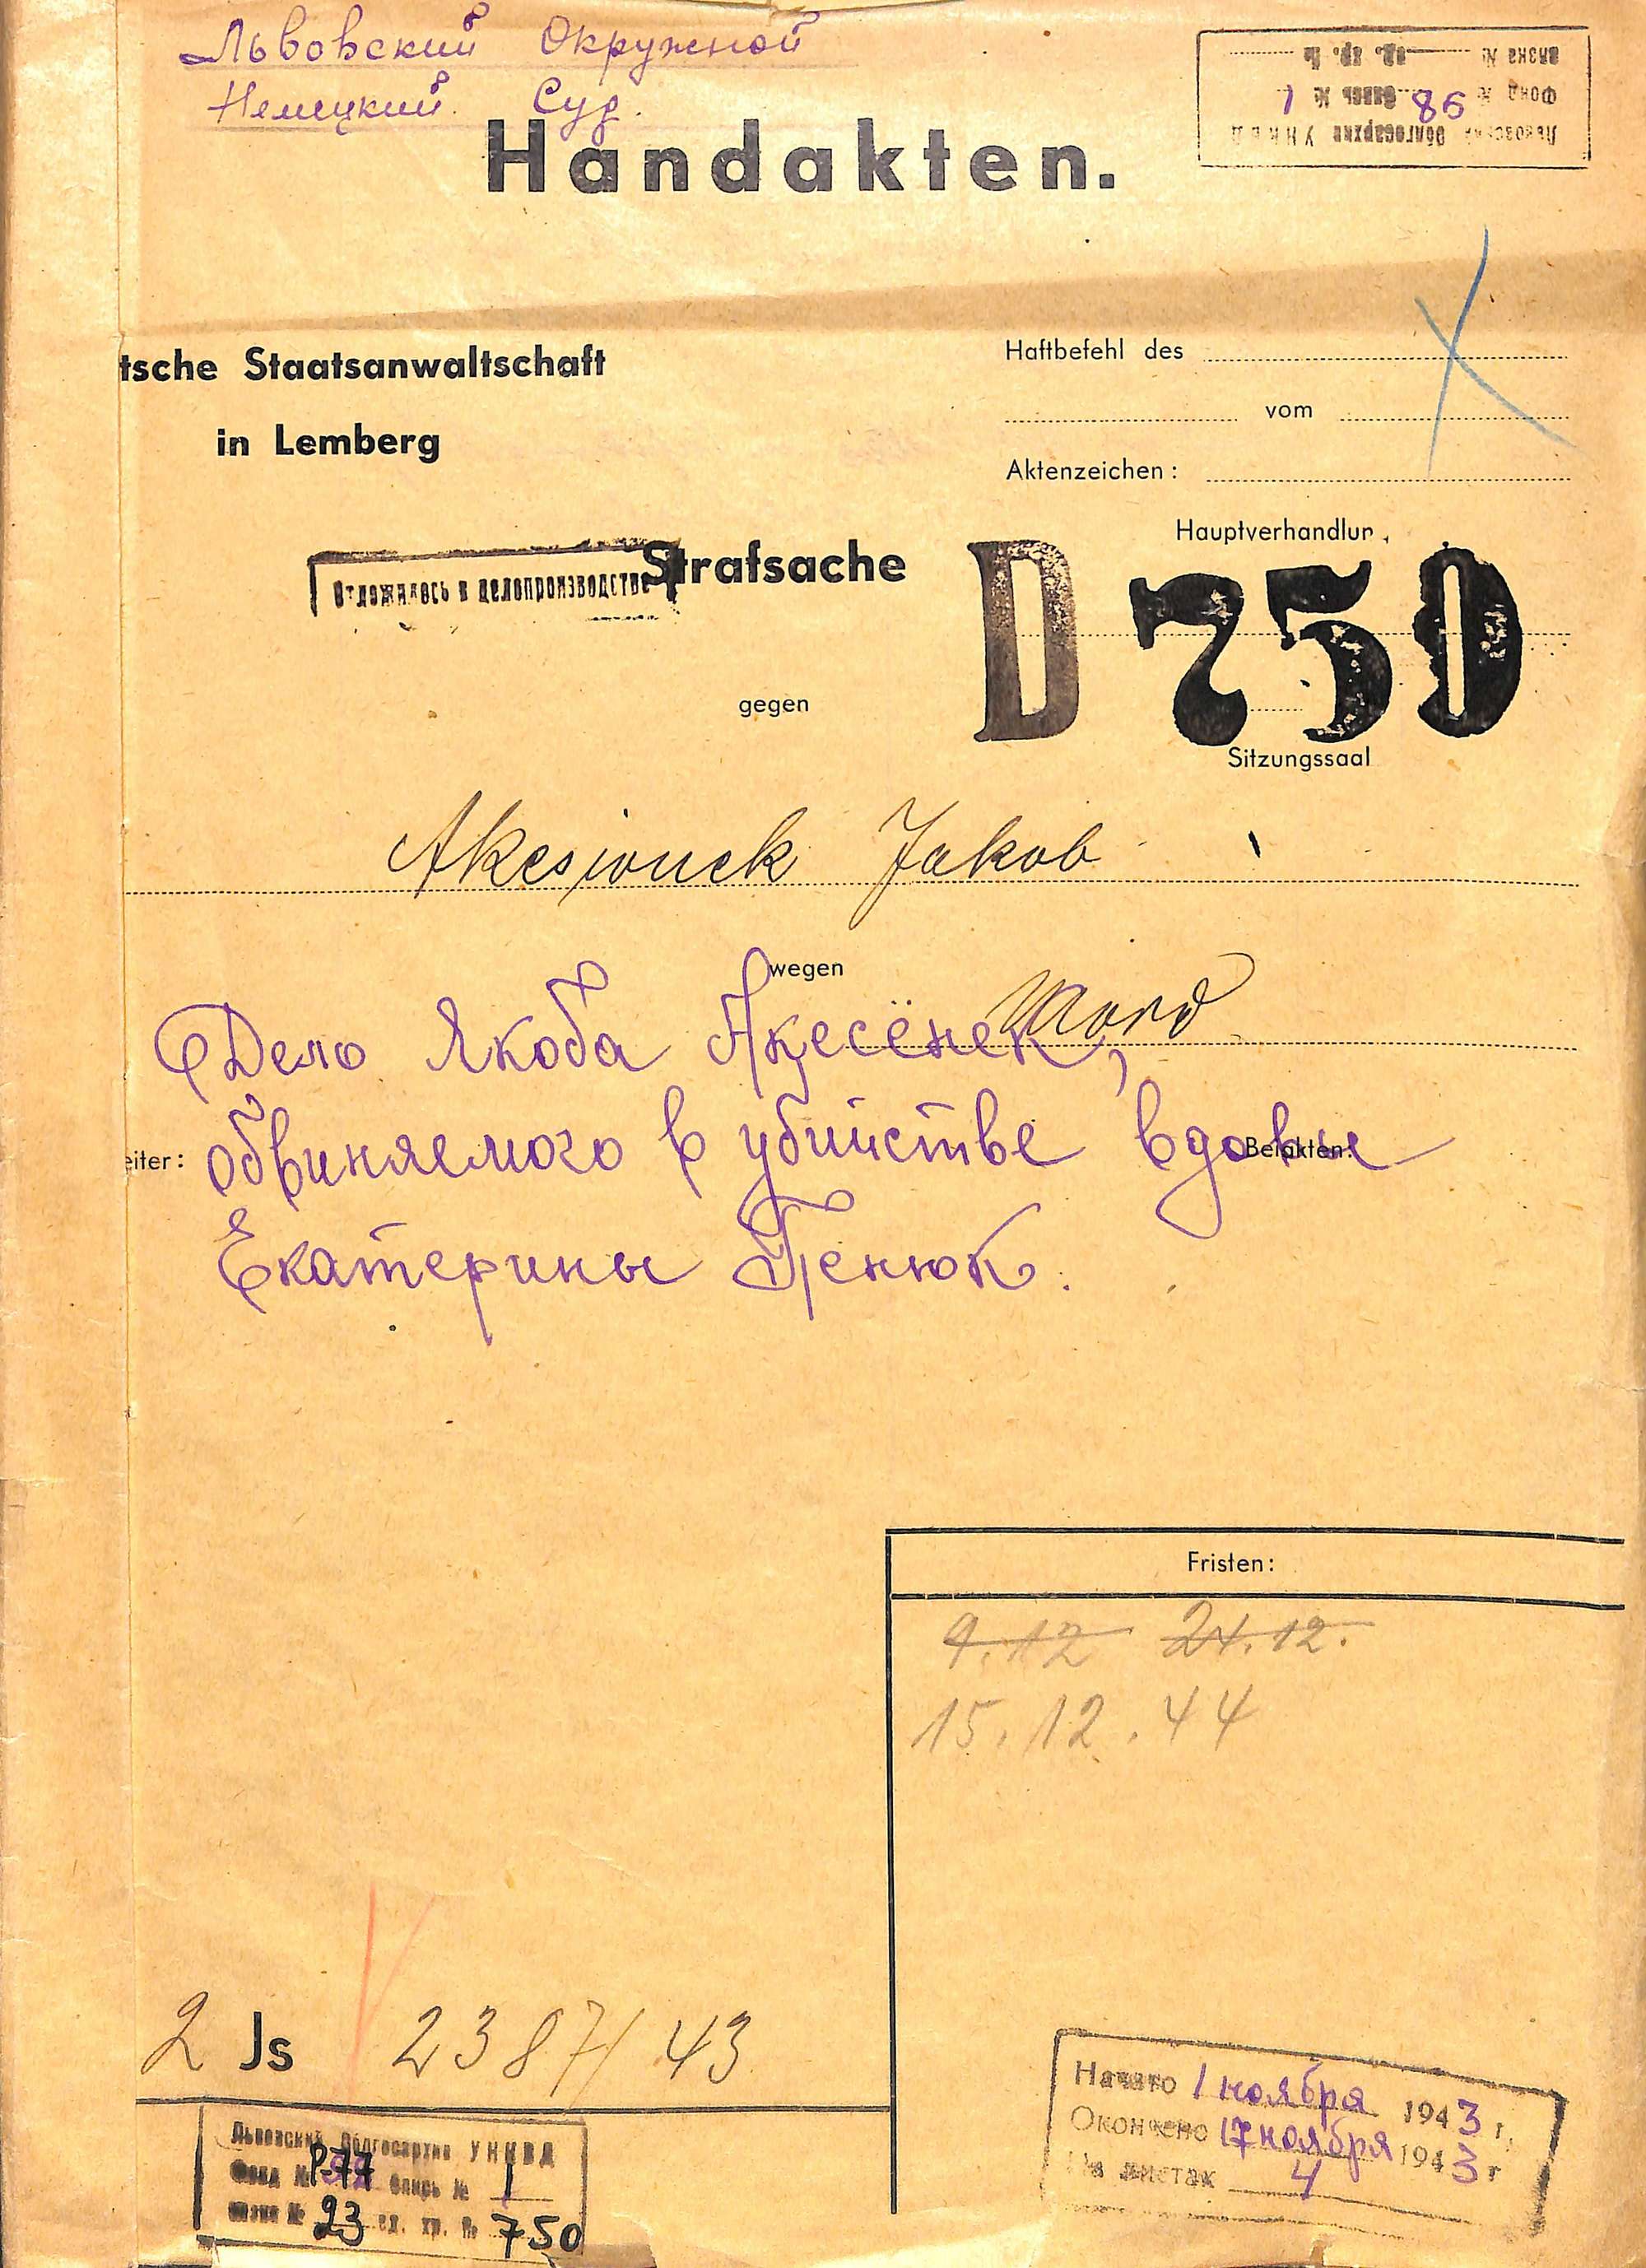 Львовский Окружной
Немецкий Суд.
Handakten.
Львовский Облгосархив УНКВД
Фонд № 86 опись № 1
вязка № ед. хр. №
tsche Staatsanwaltschaft
in Lemberg
Haftbefehl des
vom
Aktenzeichen:
Hauptverhandlun
Отложилось в делопроизводстве
Strafsache
D 750
gegen
Sitzungssaal
Akesionek Jakob
wegen
Mord
Дело Якоба Акесёнек,
обвиняемого в убийстве вдовы
eiter:
Beiakten:
Екатерины Тенюк.
Fristen:
9.12 24.12.
15.12.44
2 Js 2387/43
Начато 1 ноября 1943 г.
Окончено 17 ноября 1943 г
На листах 4
Львовский Облгосархив УНКВД
Фонд № Р-77 опись № 1
вязка № 23 ед. хр. № 750